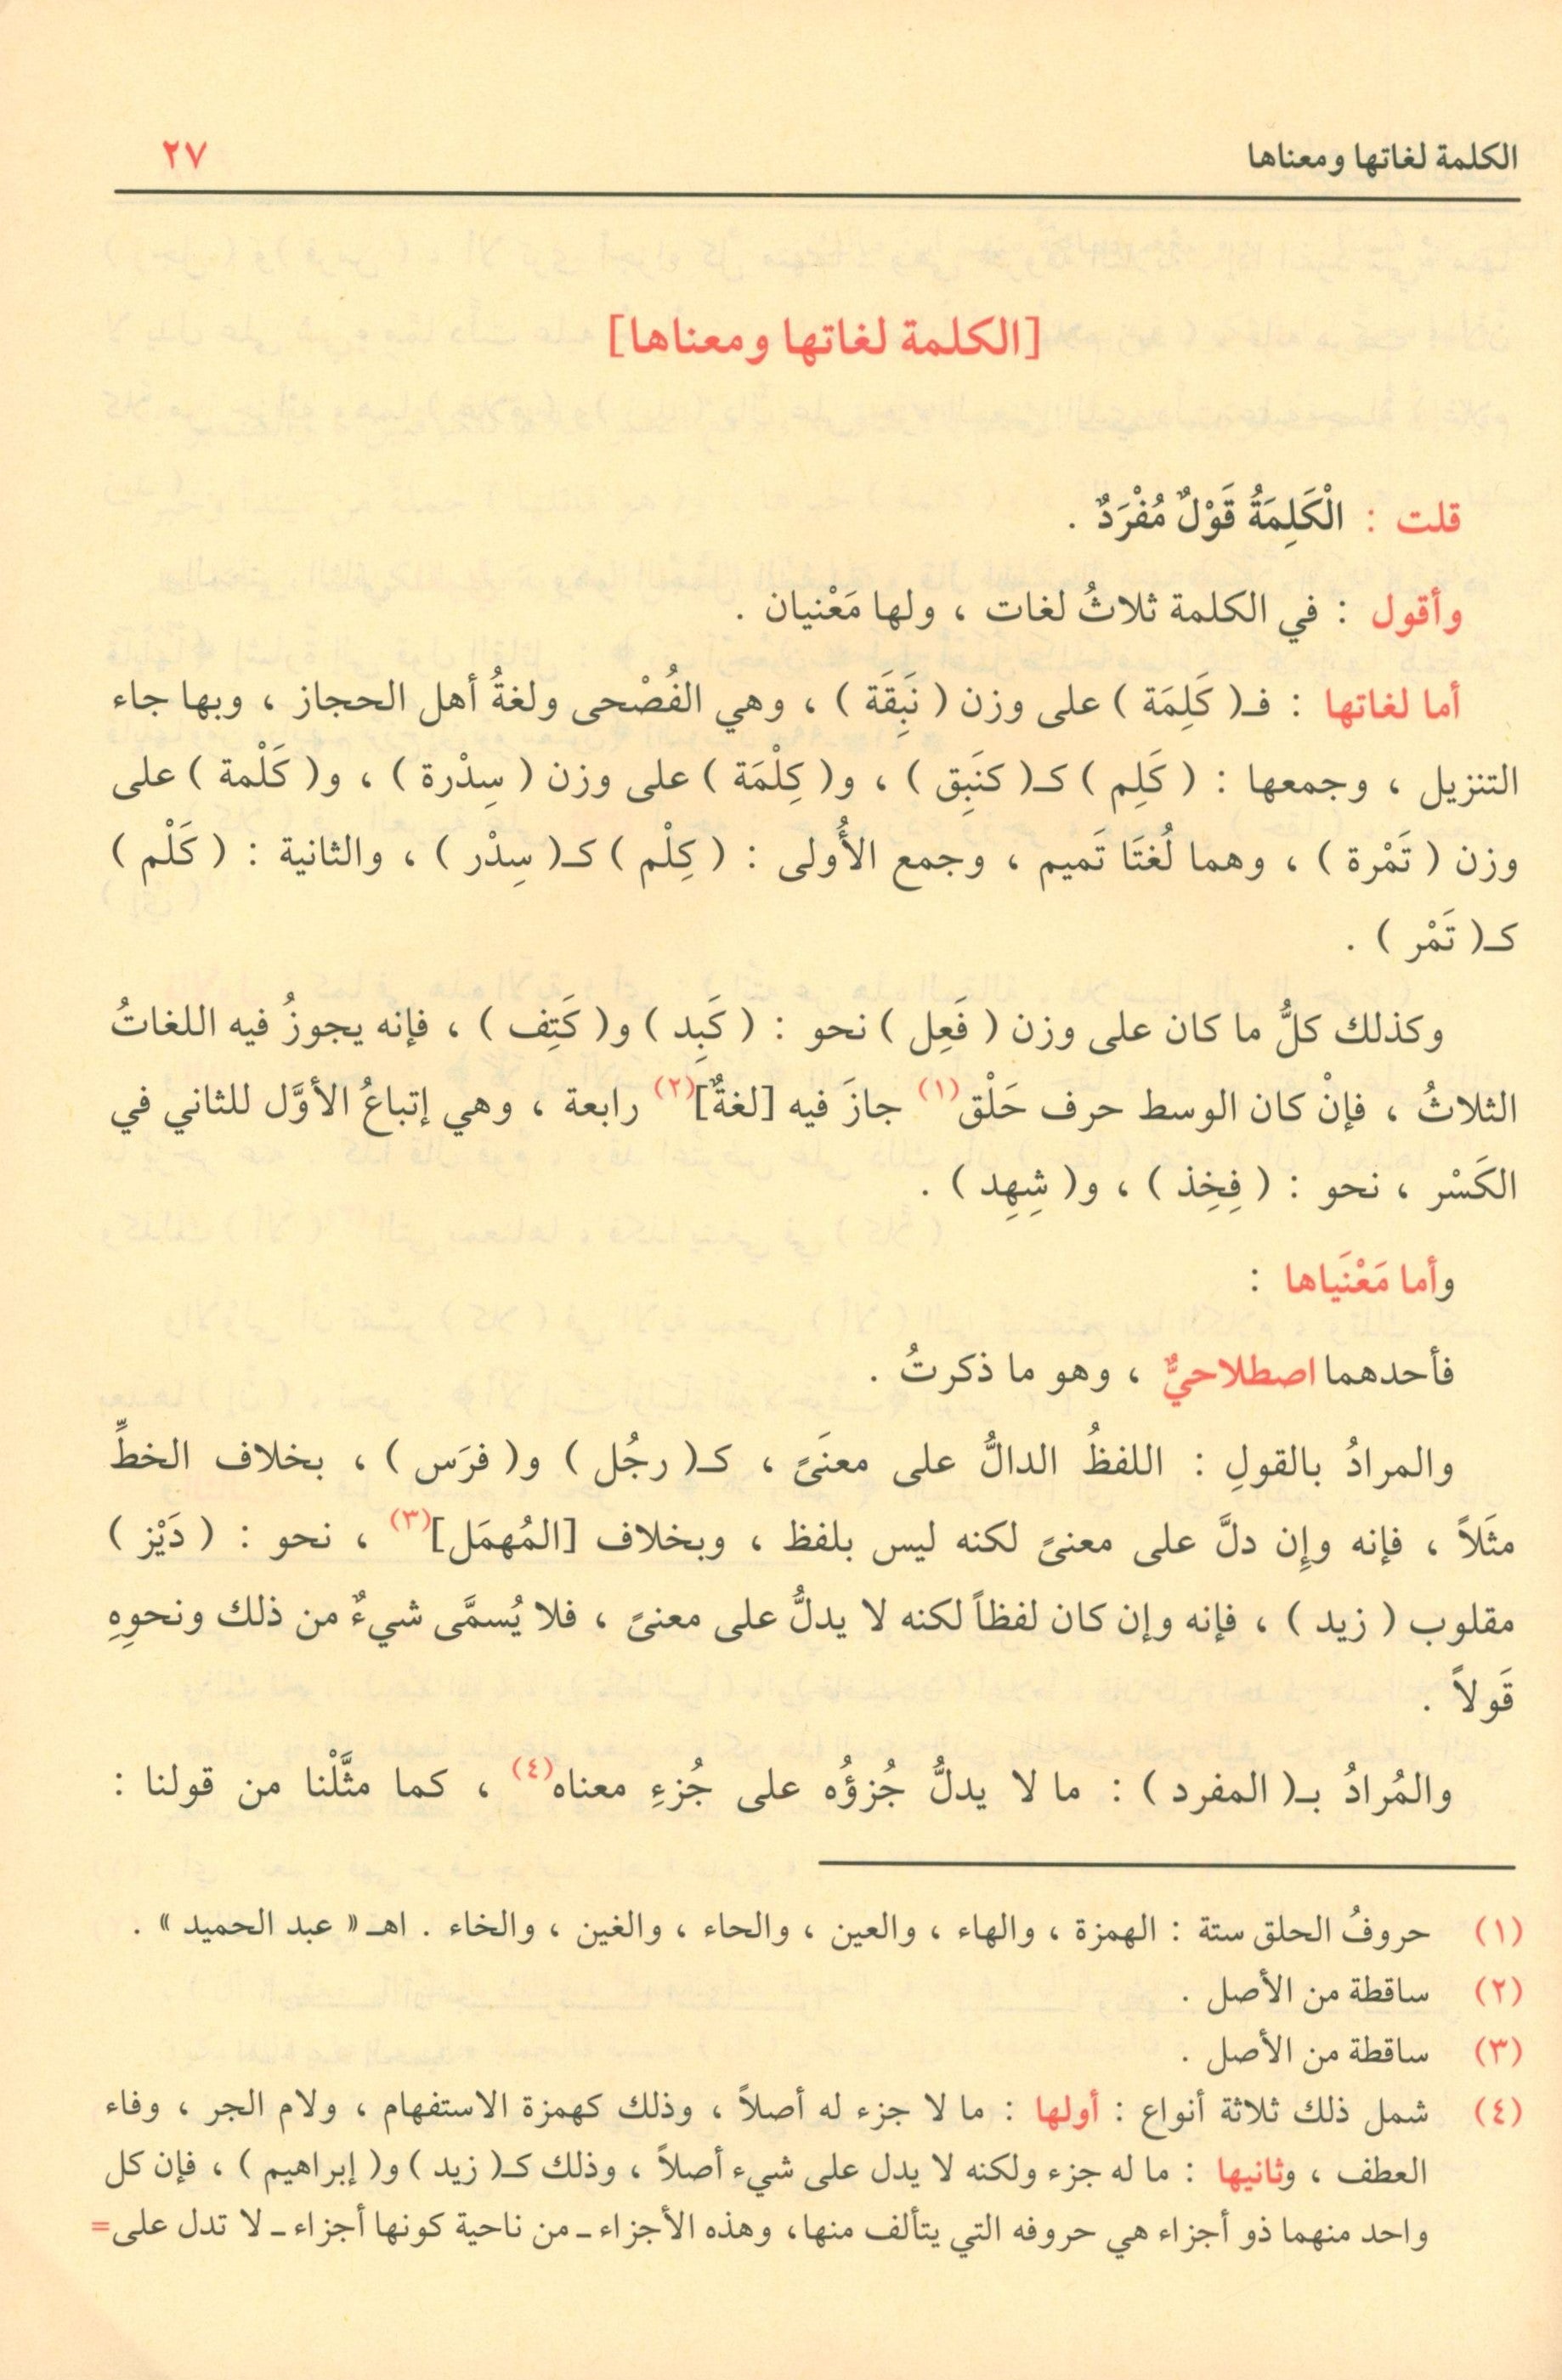 الكلمة لغاتها ومعناها ٢٧
[الكلمة لغاتها ومعناها]
قلت : الْكَلِمَةُ قَوْلٌ مُفْرَدٌ .
وأقول : في الكلمة ثلاثُ لغات ، ولها مَعْنيان .
أما لغاتها : فـ( كَلِمَة ) على وزن ( نَبِقَة ) ، وهي الفُصْحى ولغةُ أهل الحجاز ، وبها جاء
التنزيل ، وجمعها : ( كَلِم ) كـ( كنَبِق ) ، و( كِلْمَة ) على وزن ( سِدْرة ) ، و( كَلْمة ) على
وزن ( تَمْرة ) ، وهما لُغتَا تَميم ، وجمع الأُولى : ( كِلْم ) كـ( سِدْر ) ، والثانية : ( كَلْم )
كـ( تَمْر ) .
وكذلك كلُّ ما كان على وزن ( فَعِل ) نحو : ( كَبِد ) و( كَتِف ) ، فإنه يجوزُ فيه اللغاتُ
الثلاثُ ، فإنْ كان الوسط حرف حَلْق(١) جازَ فيه [لغةٌ](٢) رابعة ، وهي إتباعُ الأوَّل للثاني في
الكَسْر ، نحو : ( فِخِذ ) ، و( شِهِد ) .
وأما مَعْنَياها :
فأحدهما اصطلاحيٌّ ، وهو ما ذكرتُ .
والمرادُ بالقولِ : اللفظُ الدالُّ على معنَىً ، كـ( رجُل ) و( فرَس ) ، بخلاف الخطِّ
مثَلاً ، فإنه وإِن دلَّ على معنىً لكنه ليس بلفظ ، وبخلاف [المُهمَل](٣) ، نحو : ( دَيْز )
مقلوب ( زيد ) ، فإنه وإن كان لفظاً لكنه لا يدلُّ على معنىً ، فلا يُسمَّى شيءٌ من ذلك ونحوِهِ
قَولاً .
والمُرادُ بـ( المفرد ) : ما لا يدلُّ جُزؤُه على جُزءِ معناه(٤) ، كما مثَّلْنا من قولنا :
(١) حروفُ الحلق ستة : الهمزة ، والهاء ، والعين ، والحاء ، والغين ، والخاء . اهـ « عبد الحميد » .
(٢) ساقطة من الأصل .
(٣) ساقطة من الأصل .
(٤) شمل ذلك ثلاثة أنواع : أولها : ما لا جزء له أصلاً ، وذلك كهمزة الاستفهام ، ولام الجر ، وفاء
العطف ، وثانيها : ما له جزء ولكنه لا يدل على شيء أصلاً ، وذلك كـ( زيد ) و( إبراهيم ) ، فإن كل
واحد منهما ذو أجزاء هي حروفه التي يتألف منها، وهذه الأجزاء ـ من ناحية كونها أجزاء ـ لا تدل على=